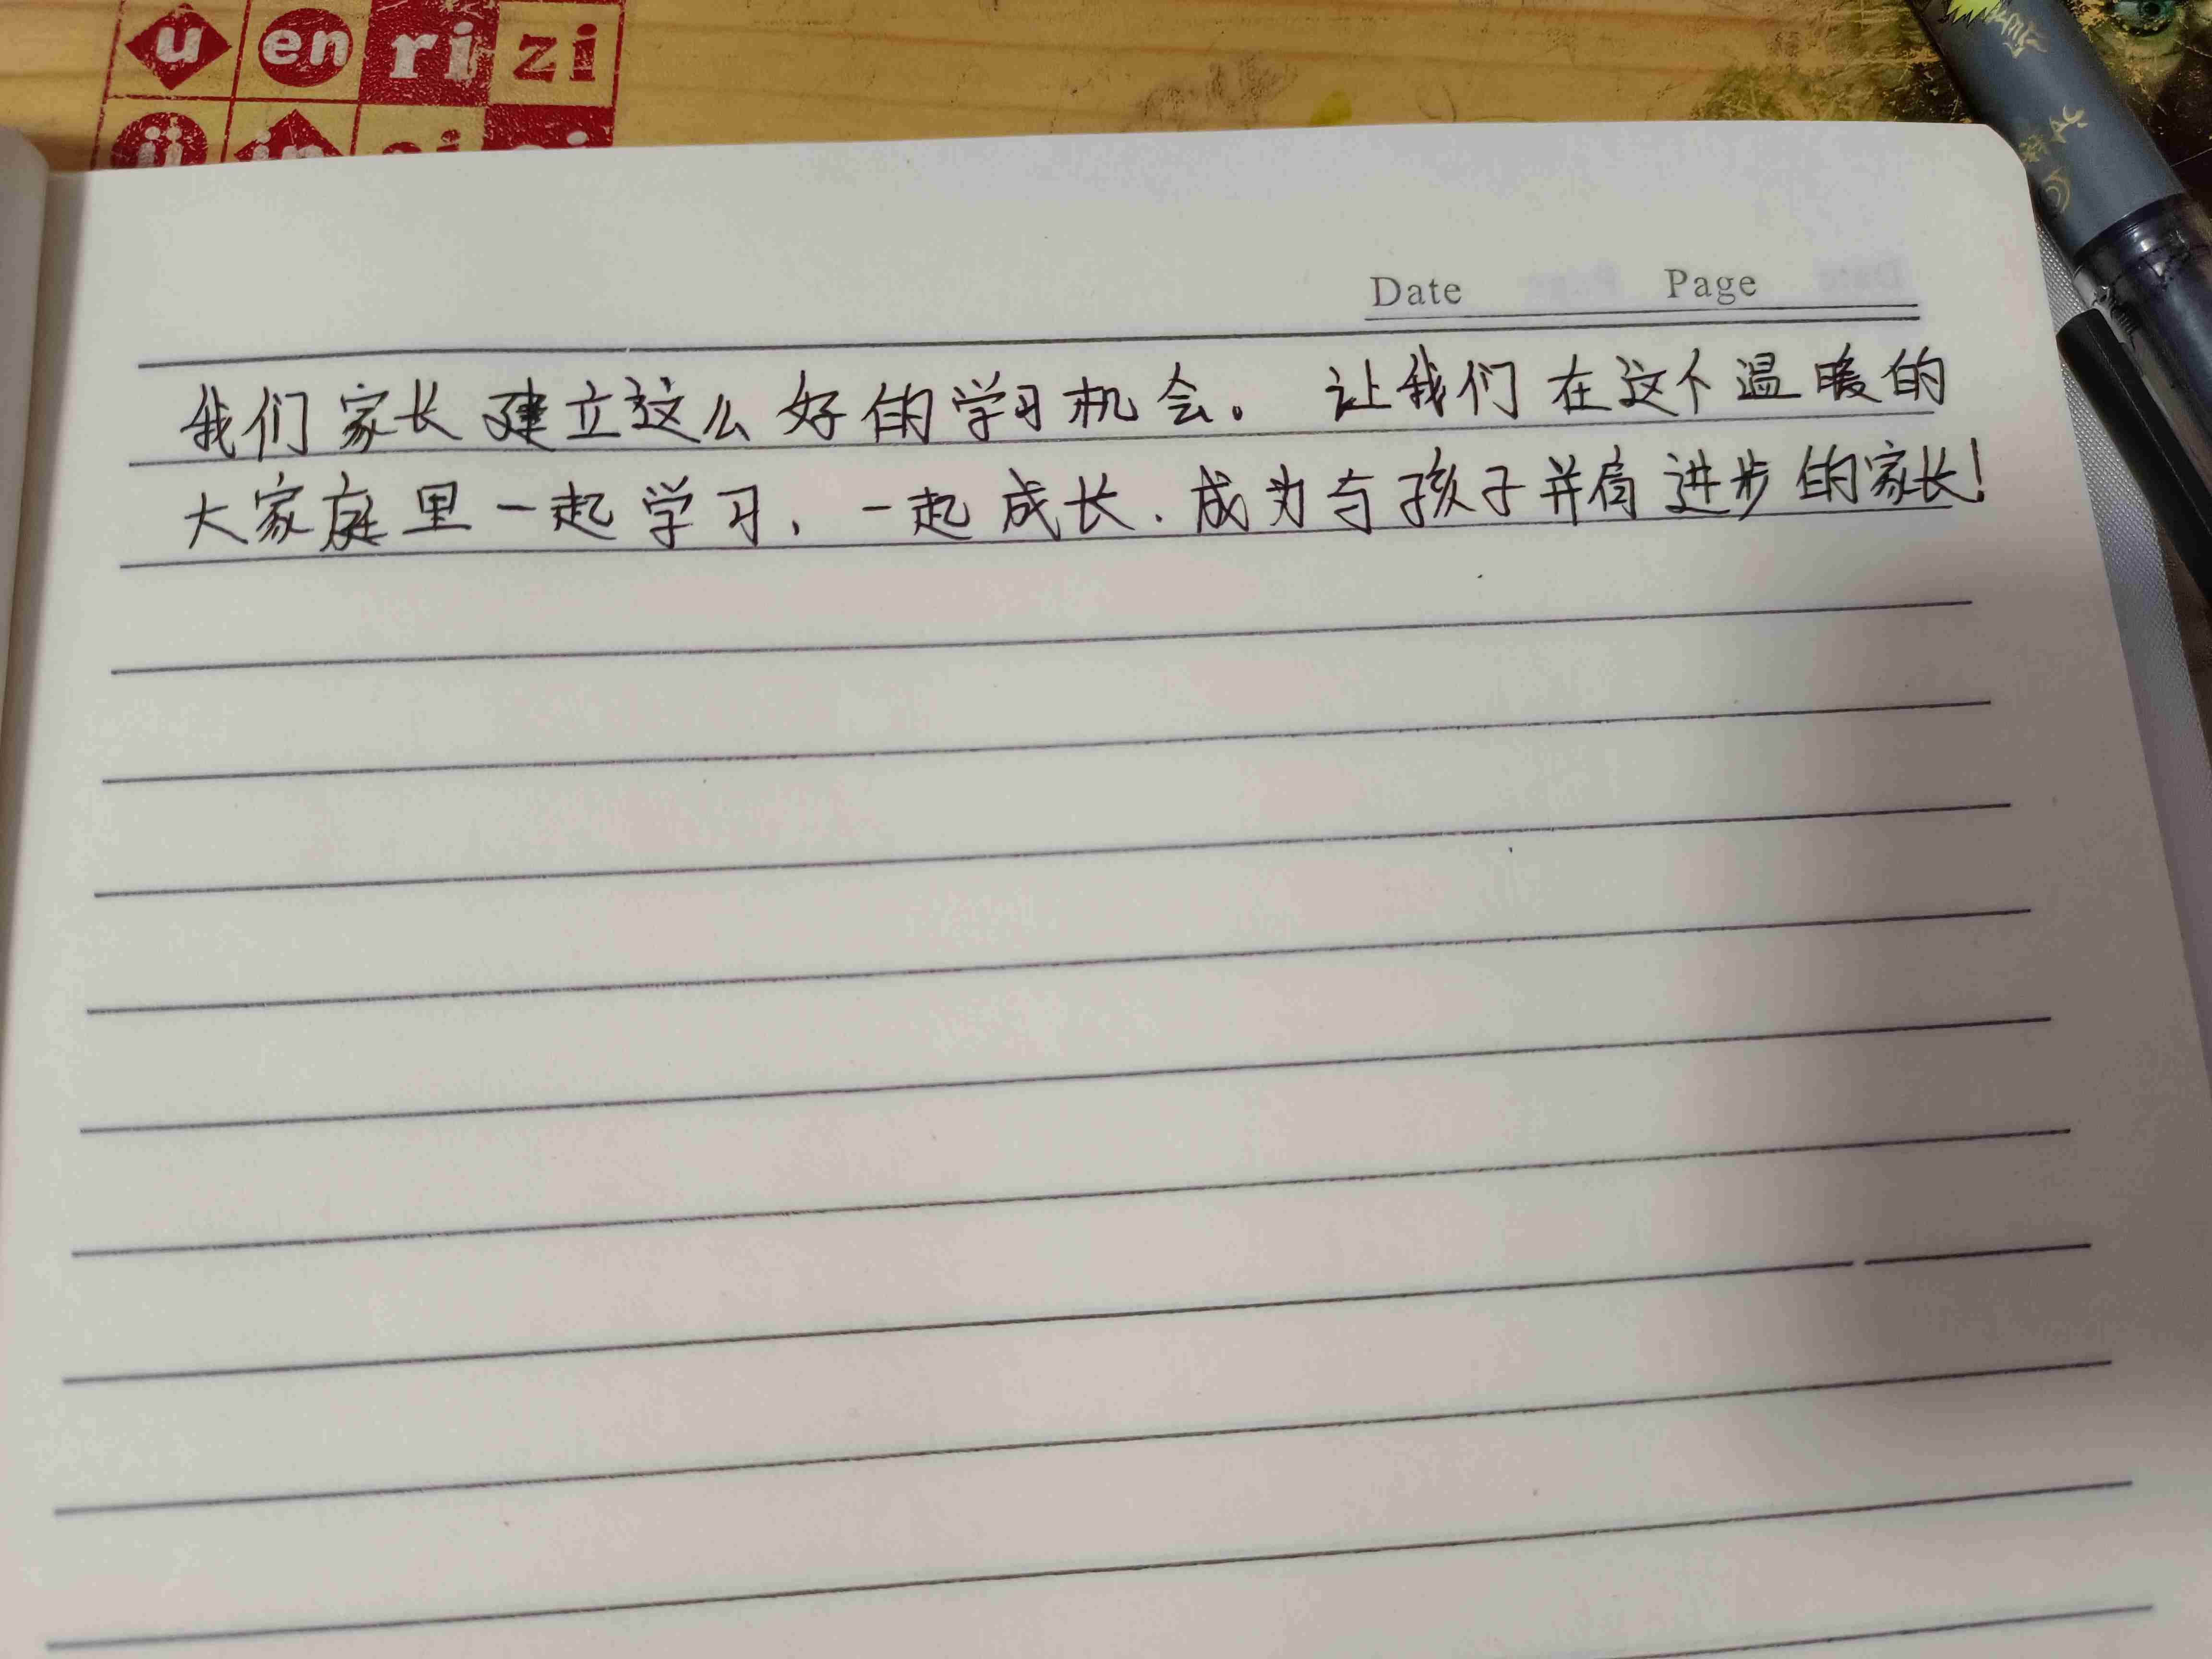 û en ri zi
Date Page
我们家长建立这么好的学习机会。让我们在这个温暖的
大家庭里一起学习，一起成长，成为与孩子并肩进步的家长！